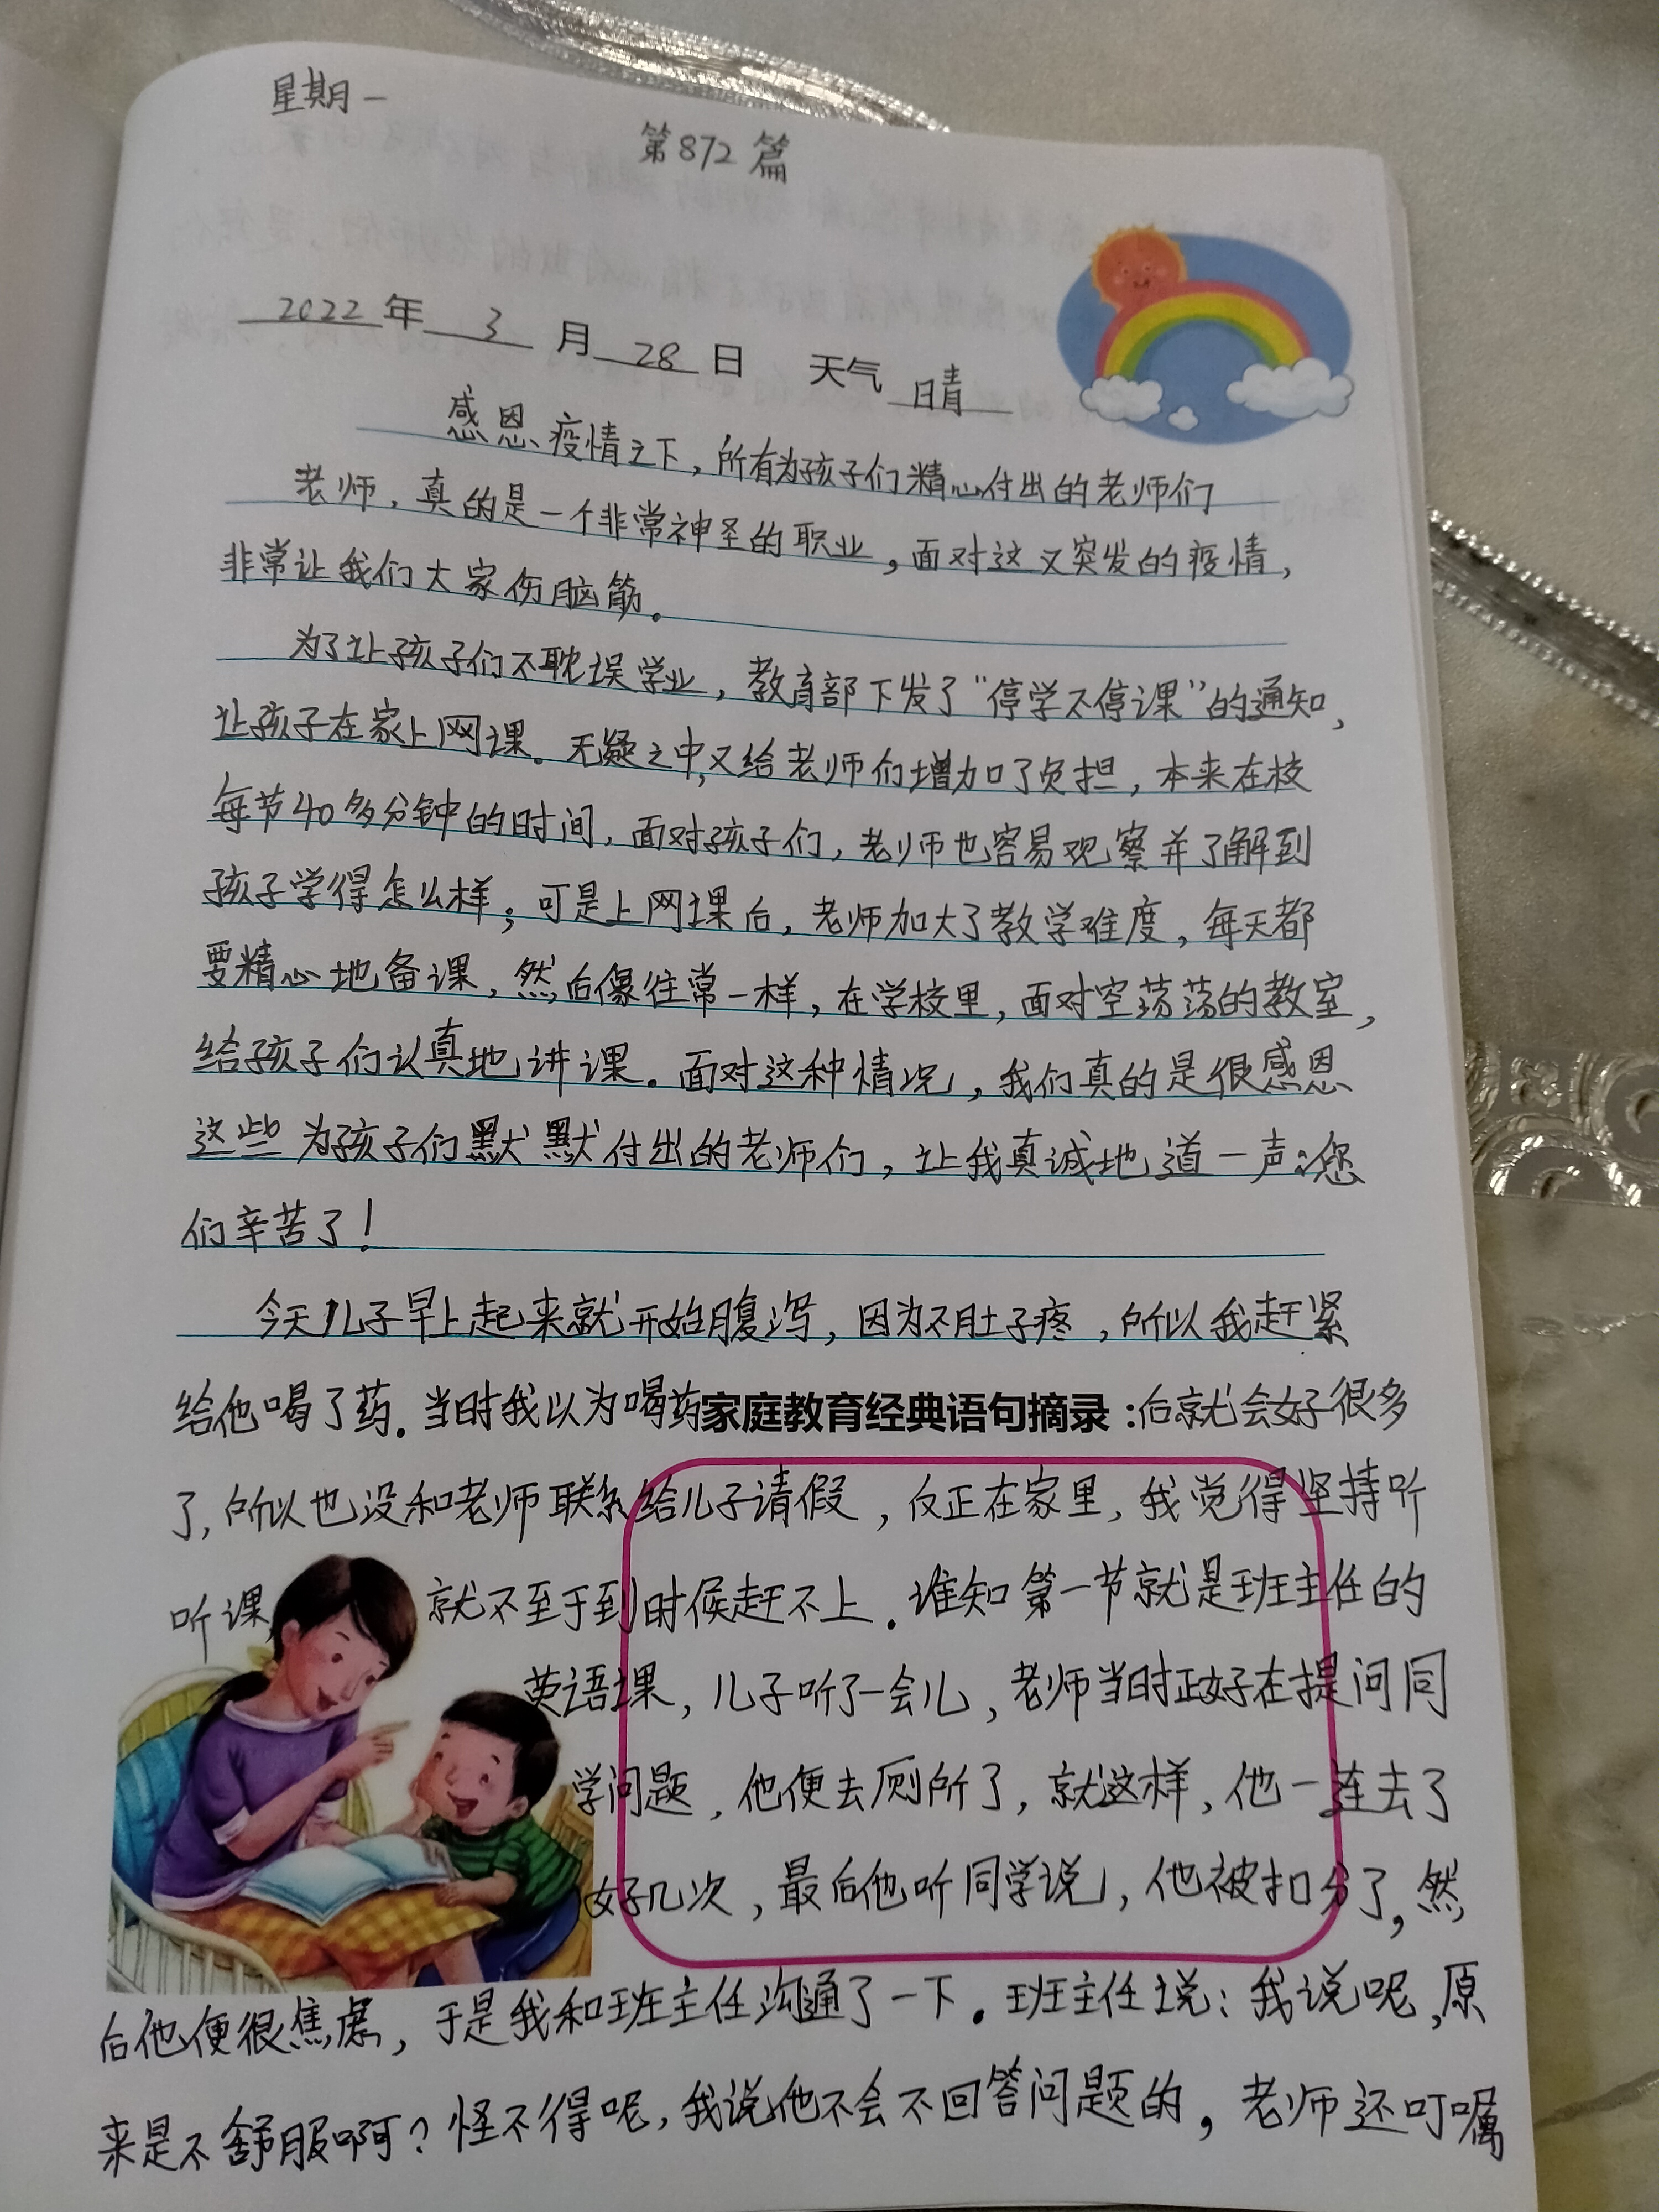 星期一
第872篇
2022年3月28日 天气 晴
感恩疫情之下，所有为孩子们精心付出的老师们
老师，真的是一个非常神圣的职业，面对这又突发的疫情，
非常让我们大家伤脑筋。
为了让孩子们不耽误学业，教育部下发了“停学不停课”的通知，
让孩子在家上网课。无疑之中，又给老师们增加了负担，本来在校
每节40多分钟的时间，面对孩子们，老师也容易观察并了解到
孩子学得怎么样；可是上网课后，老师加大了教学难度，每天都
要精心地备课，然后像往常一样，在学校里，面对空荡荡的教室，
给孩子们认真地讲课。面对这种情况，我们真的是很感恩
这些为孩子们默默付出的老师们，让我真诚地道一声：您
们辛苦了！
今天儿子早上起来就开始腹泻，因为不肚子疼，所以我赶紧
给他喝了药。当时我以为喝药家庭教育经典语句摘录：后就会好很多
了，所以也没和老师联系给儿子请假，反正在家里，我觉得坚持听
听课，就不至于到时候赶不上。谁知第一节就是班主任的
英语课，儿子听了一会儿，老师当时正好在提问同
学问题，他便去厕所了，就这样，他一连去了
好几次，最后他听同学说，他被扣分了，然
后他便很焦虑，于是我和班主任沟通了一下。班主任说：我说呢，原
来是不舒服啊？怪不得呢，我说他不会不回答问题的，老师还叮嘱